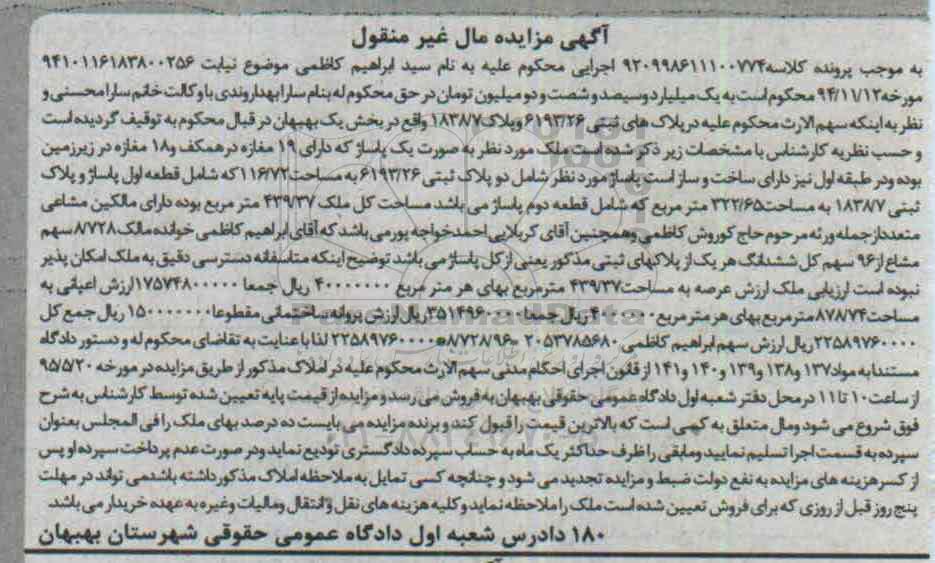 آگهی مزایده مال غیر منقول
به موجب پرونده کلاسه ۹۲۰۹۹۸۶۱۱۱۱۰۰۷۷۴ اجرایی محکوم علیه به نام سید ابراهیم کاظمی موضوع نیابت ۹۴۱۰۱۱۶۱۸۳۸۰۰۲۵۶
مورخه ۹۴/۱۱/۱۲ محکوم است به یک میلیارد وسیصد و شصت و دو میلیون تومان در حق محکوم له بنام سارا بهداروندی با وکالت خانم سارا محسنی و
نظر به اینکه سهم الارث محکوم علیه در پلاک های ثبتی ۶۱۹۳/۲۶ و پلاک ۱۸۳۸/۷ واقع در بخش یک بهبهان در قبال محکوم به توقیف گردیده است
و حسب نظریه کارشناس با مشخصات زیر ذکر شده است ملک مورد نظر به صورت یک پاساژ که دارای ۱۹ مغازه در همکف و ۱۸ مغازه در زیرزمین
بوده ودر طبقه اول نیز دارای ساخت و ساز است پاساژ مورد نظر شامل دو پلاک ثبتی ۶۱۹۳/۲۶ به مساحت ۱۱۶/۷۲ که شامل قطعه اول پاساژ و پلاک
ثبتی ۱۸۳۸/۷ به مساحت ۳۲۲/۶۵ متر مربع که شامل قطعه دوم پاساژ می باشد مساحت کل ملک ۴۳۹/۳۷ متر مربع بوده دارای مالکین مشاعی
متعدد از جمله ورثه مرحوم حاج کوروش کاظمی وهمچنین آقای کربلایی احمد خواجه پور می باشد که آقای ابراهیم کاظمی خوانده مالک ۸/۷۲۸ سهم
مشاع از ۹۶ سهم کل ششدانگ هر یک از پلاکهای ثبتی مذکور یعنی از کل پاساژ می باشد توضیح اینکه متاسفانه دسترسی دقیق به ملک امکان پذیر
نبوده است ارزیابی ملک ارزش عرصه به مساحت ۴۳۹/۳۷ مترمربع بهای هر متر مربع ۴۰۰۰۰۰۰۰ ریال جمعا ۱۷۵۷۴۸۰۰۰۰۰ ارزش اعیانی به
مساحت ۸۷۸/۷۴ متر مربع بهای هر متر مربع ۴۰۰۰۰۰۰ ریال جمعا ۳۵۱۴۹۶۰۰۰۰ ریال ارزش پروانه ساختمانی مقطوعا ۱۵۰۰۰۰۰۰۰۰ ریال جمع کل
۲۲۵۸۹۷۶۰۰۰۰ ریال ارزش سهم ابراهیم کاظمی ۲۰۵۳۷۸۵۶۸۰ =۸/۷۲۸/۹۶*۲۲۵۸۹۷۶۰۰۰۰ لذا با عنایت به تقاضای محکوم له و دستور دادگاه
مستندا به مواد ۱۳۷ و ۱۳۸ و ۱۳۹ و ۱۴۰ و ۱۴۱ از قانون اجرای احکام مدنی سهم الارث محکوم علیه در املاک مذکور از طریق مزایده در مورخه ۹۵/۵/۲۰
از ساعت ۱۰ تا ۱۱ در محل دفتر شعبه اول دادگاه عمومی حقوقی بهبهان به فروش می رسد و مزایده از قیمت پایه تعیین شده توسط کارشناس به شرح
فوق شروع می شود ومال متعلق به کسی است که بالاترین قیمت را قبول کند و برنده مزایده می بایست ده درصد بهای ملک را فی المجلس بعنوان
سپرده به قسمت اجرا تسلیم نمایید ومابقی را ظرف حداکثر یک ماه به حساب سپرده دادگستری تودیع نماید ودر صورت عدم پرداخت سپرده او پس
از کسر هزینه های مزایده به نفع دولت ضبط و مزایده تجدید می شود و چنانچه کسی تمایل به ملاحظه املاک مذکور داشته باشد می تواند در مهلت
پنج روز قبل از روزی که برای فروش تعیین شده است ملک را ملاحظه نماید و کلیه هزینه های نقل و انتقال و مالیات و غیره به عهده خریدار می باشد.
۱۸۰ دادرس شعبه اول دادگاه عمومی حقوقی شهرستان بهبهان